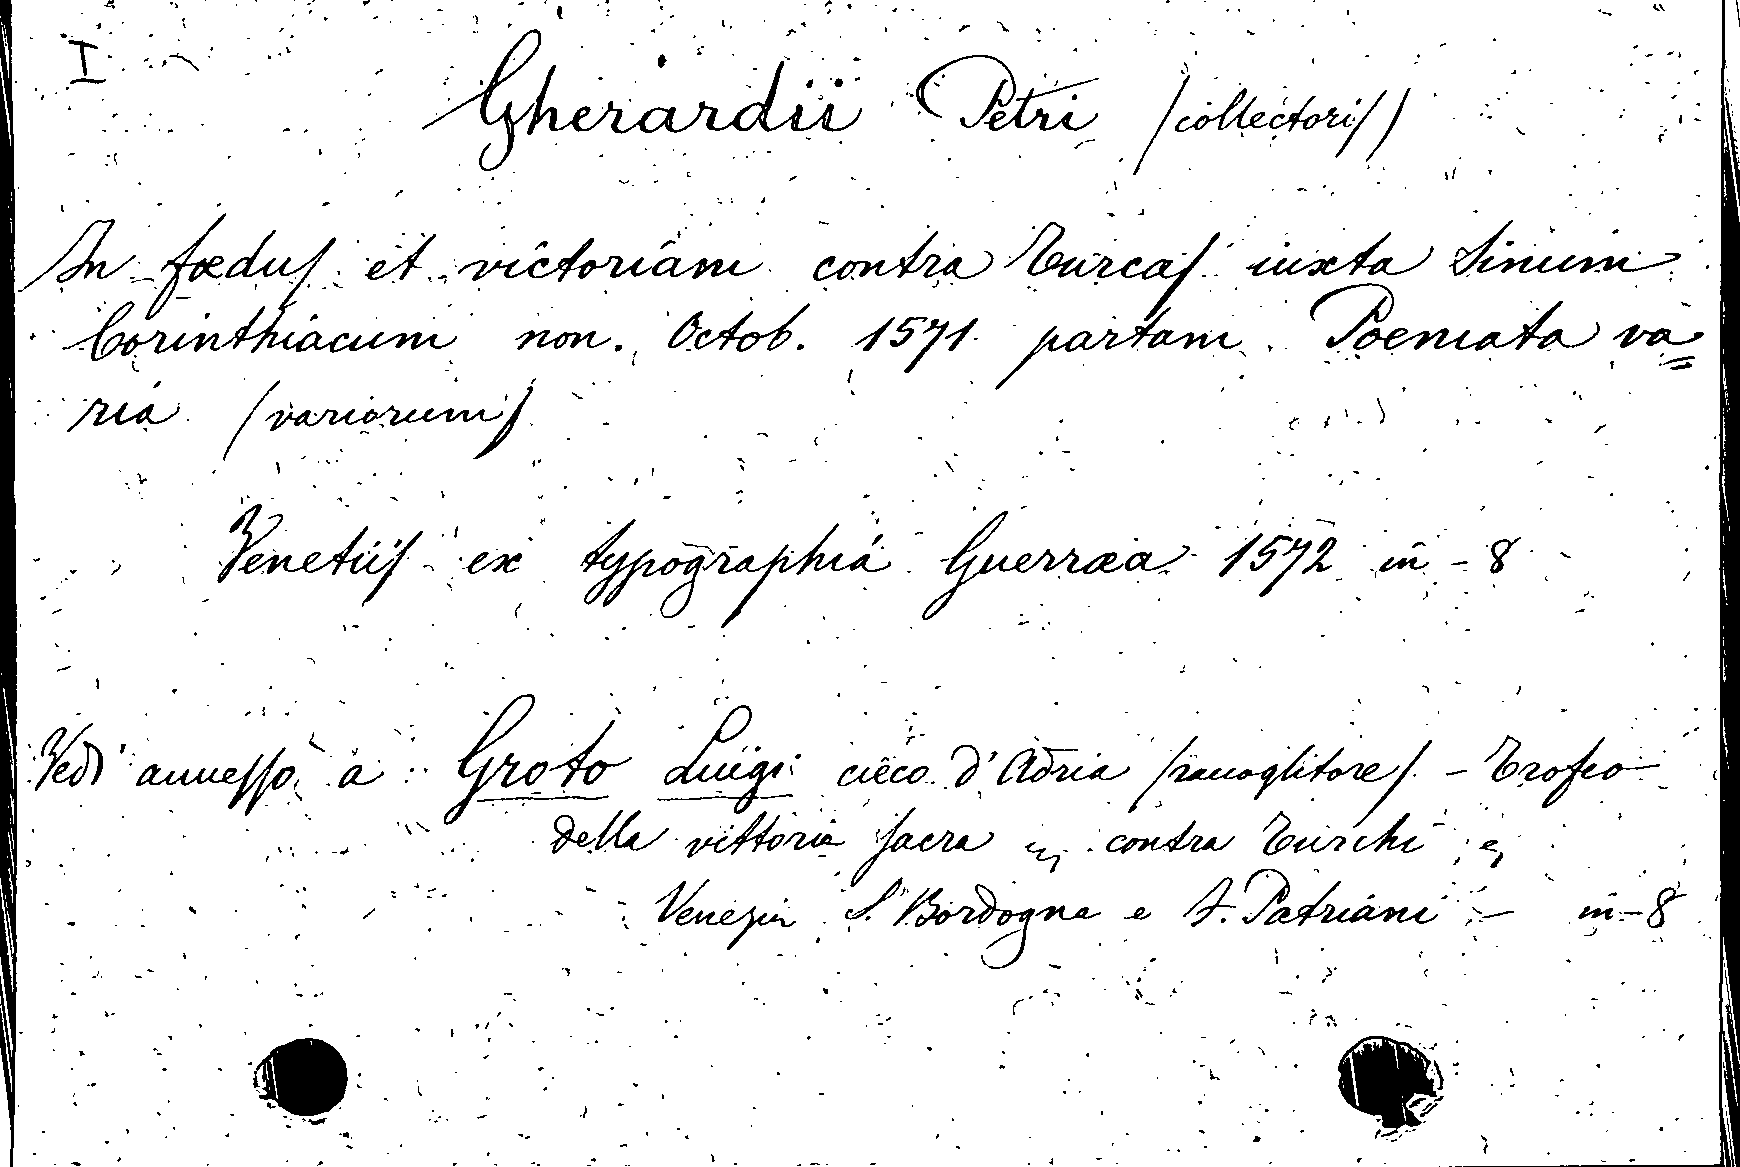 I
Gherardii Petri (collectoris)
In fœdus et victoriam contra Turcas iuxta Sinum
Corinthiacum non. Octob. 1571 partam. Poemata va=
ria (variorum)
Venetiis ex typographia Guerræa 1572 in-8
Vedi annesso a Groto Luigi cieco d'Adria (raccoglitore) - Trofeo
della vittoria sacra contra Turchi
Venezia S. Bordogna e F. Patriani - in-8